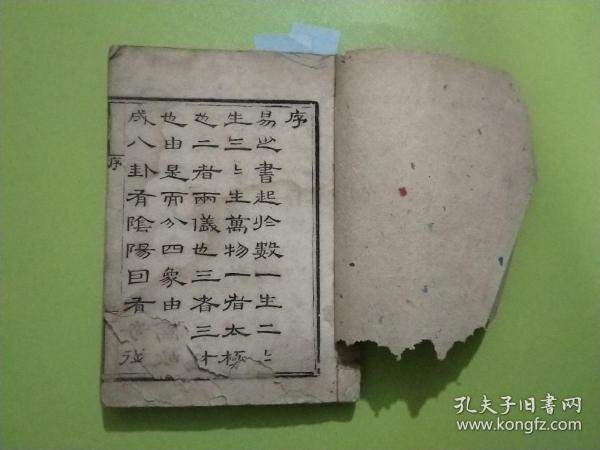 序
易之書起於數一生二二
生三三生萬物一者太極
也二者兩儀也三者三才
也由是而分四象由
成八卦有陰陽回有
序
孔夫子旧书网
www.kongfz.com